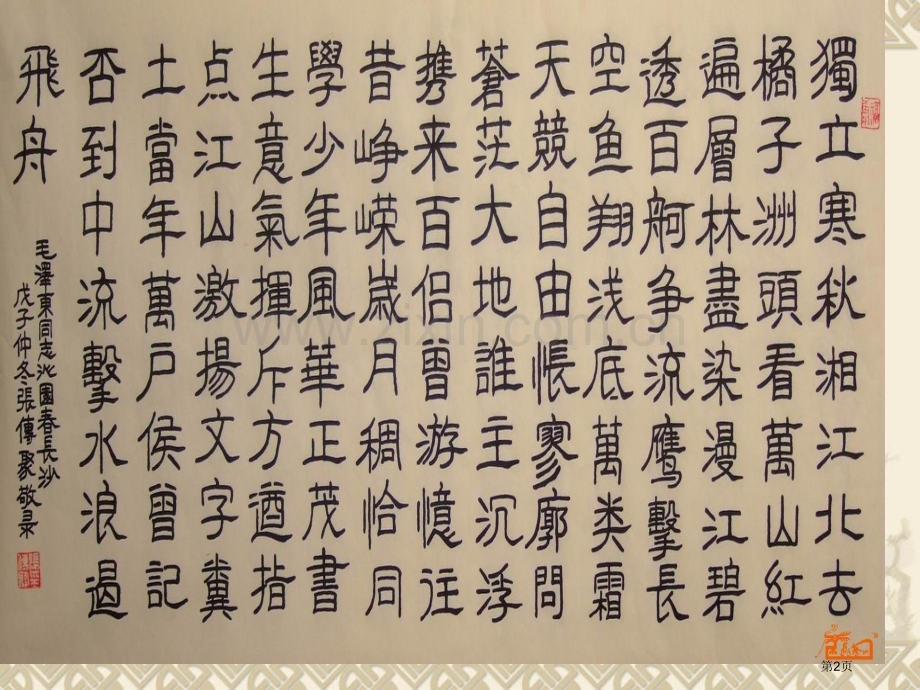 獨立寒秋湘江北去
橘子洲頭看萬山紅
遍層林盡染漫江碧
透百舸争流鹰擊長
空鱼翔浅底萬类霜
天競自由悵寥廓問
蒼茫大地誰主沉浮
携来百侣曾游憶往
昔峥嵘嵗月稠恰同
學少年風華正茂書
生意氣揮斥方遒指
点江山激揚文字糞
土當年萬户侯曾記
否到中流擊水浪遏
飛舟
毛澤東同志沁園春長沙
戊子仲冬張傳聚敬录
www.zixin.com.cn
第2页